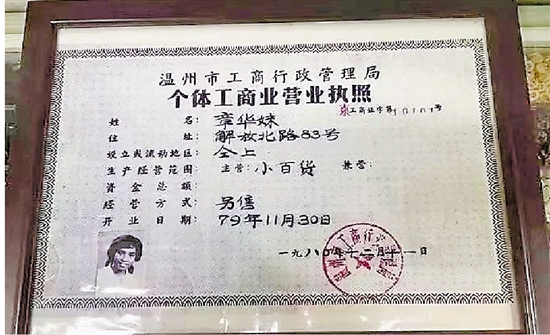 温州市工商行政管理局
个体工商业营业执照
工商业字第10101号
姓名：章华妹
住址：解放北路83号
设立或流动地区：仝上
生产经营范围：主营：小百货 兼营：
资金总额：
经营方式：另售
开业日期：79年11月30日
一九八〇年十二月十一日
温州市工商行政管理局